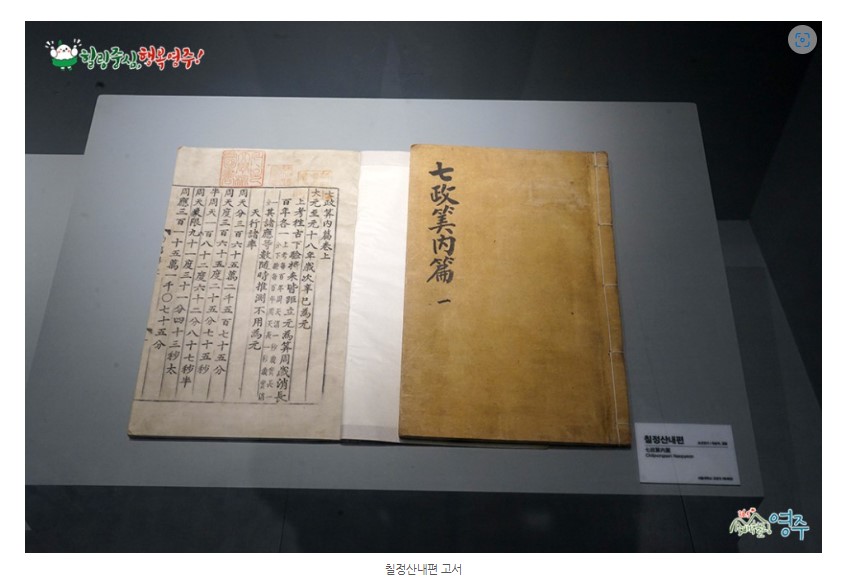 힐링중심, 행복영주!
七政算內篇卷上
大元至元十八年歲次辛巳為元
上考往古下驗將來皆距立元為算周歲消長
百年各一
其諸應等數隨時推測不用為元
天行諸率
周天分三百六十五萬二千五百七十五分
周天度三百六十五度二十五分七十五秒
半周天一百八十二度六十二分八十七秒半
周天象限九十一度三十一分四十三秒太
周應三百一十五萬一千〇七十五分
七政筭内篇 一
칠정산내편
七政算內篇
영주
칠정산내편 고서